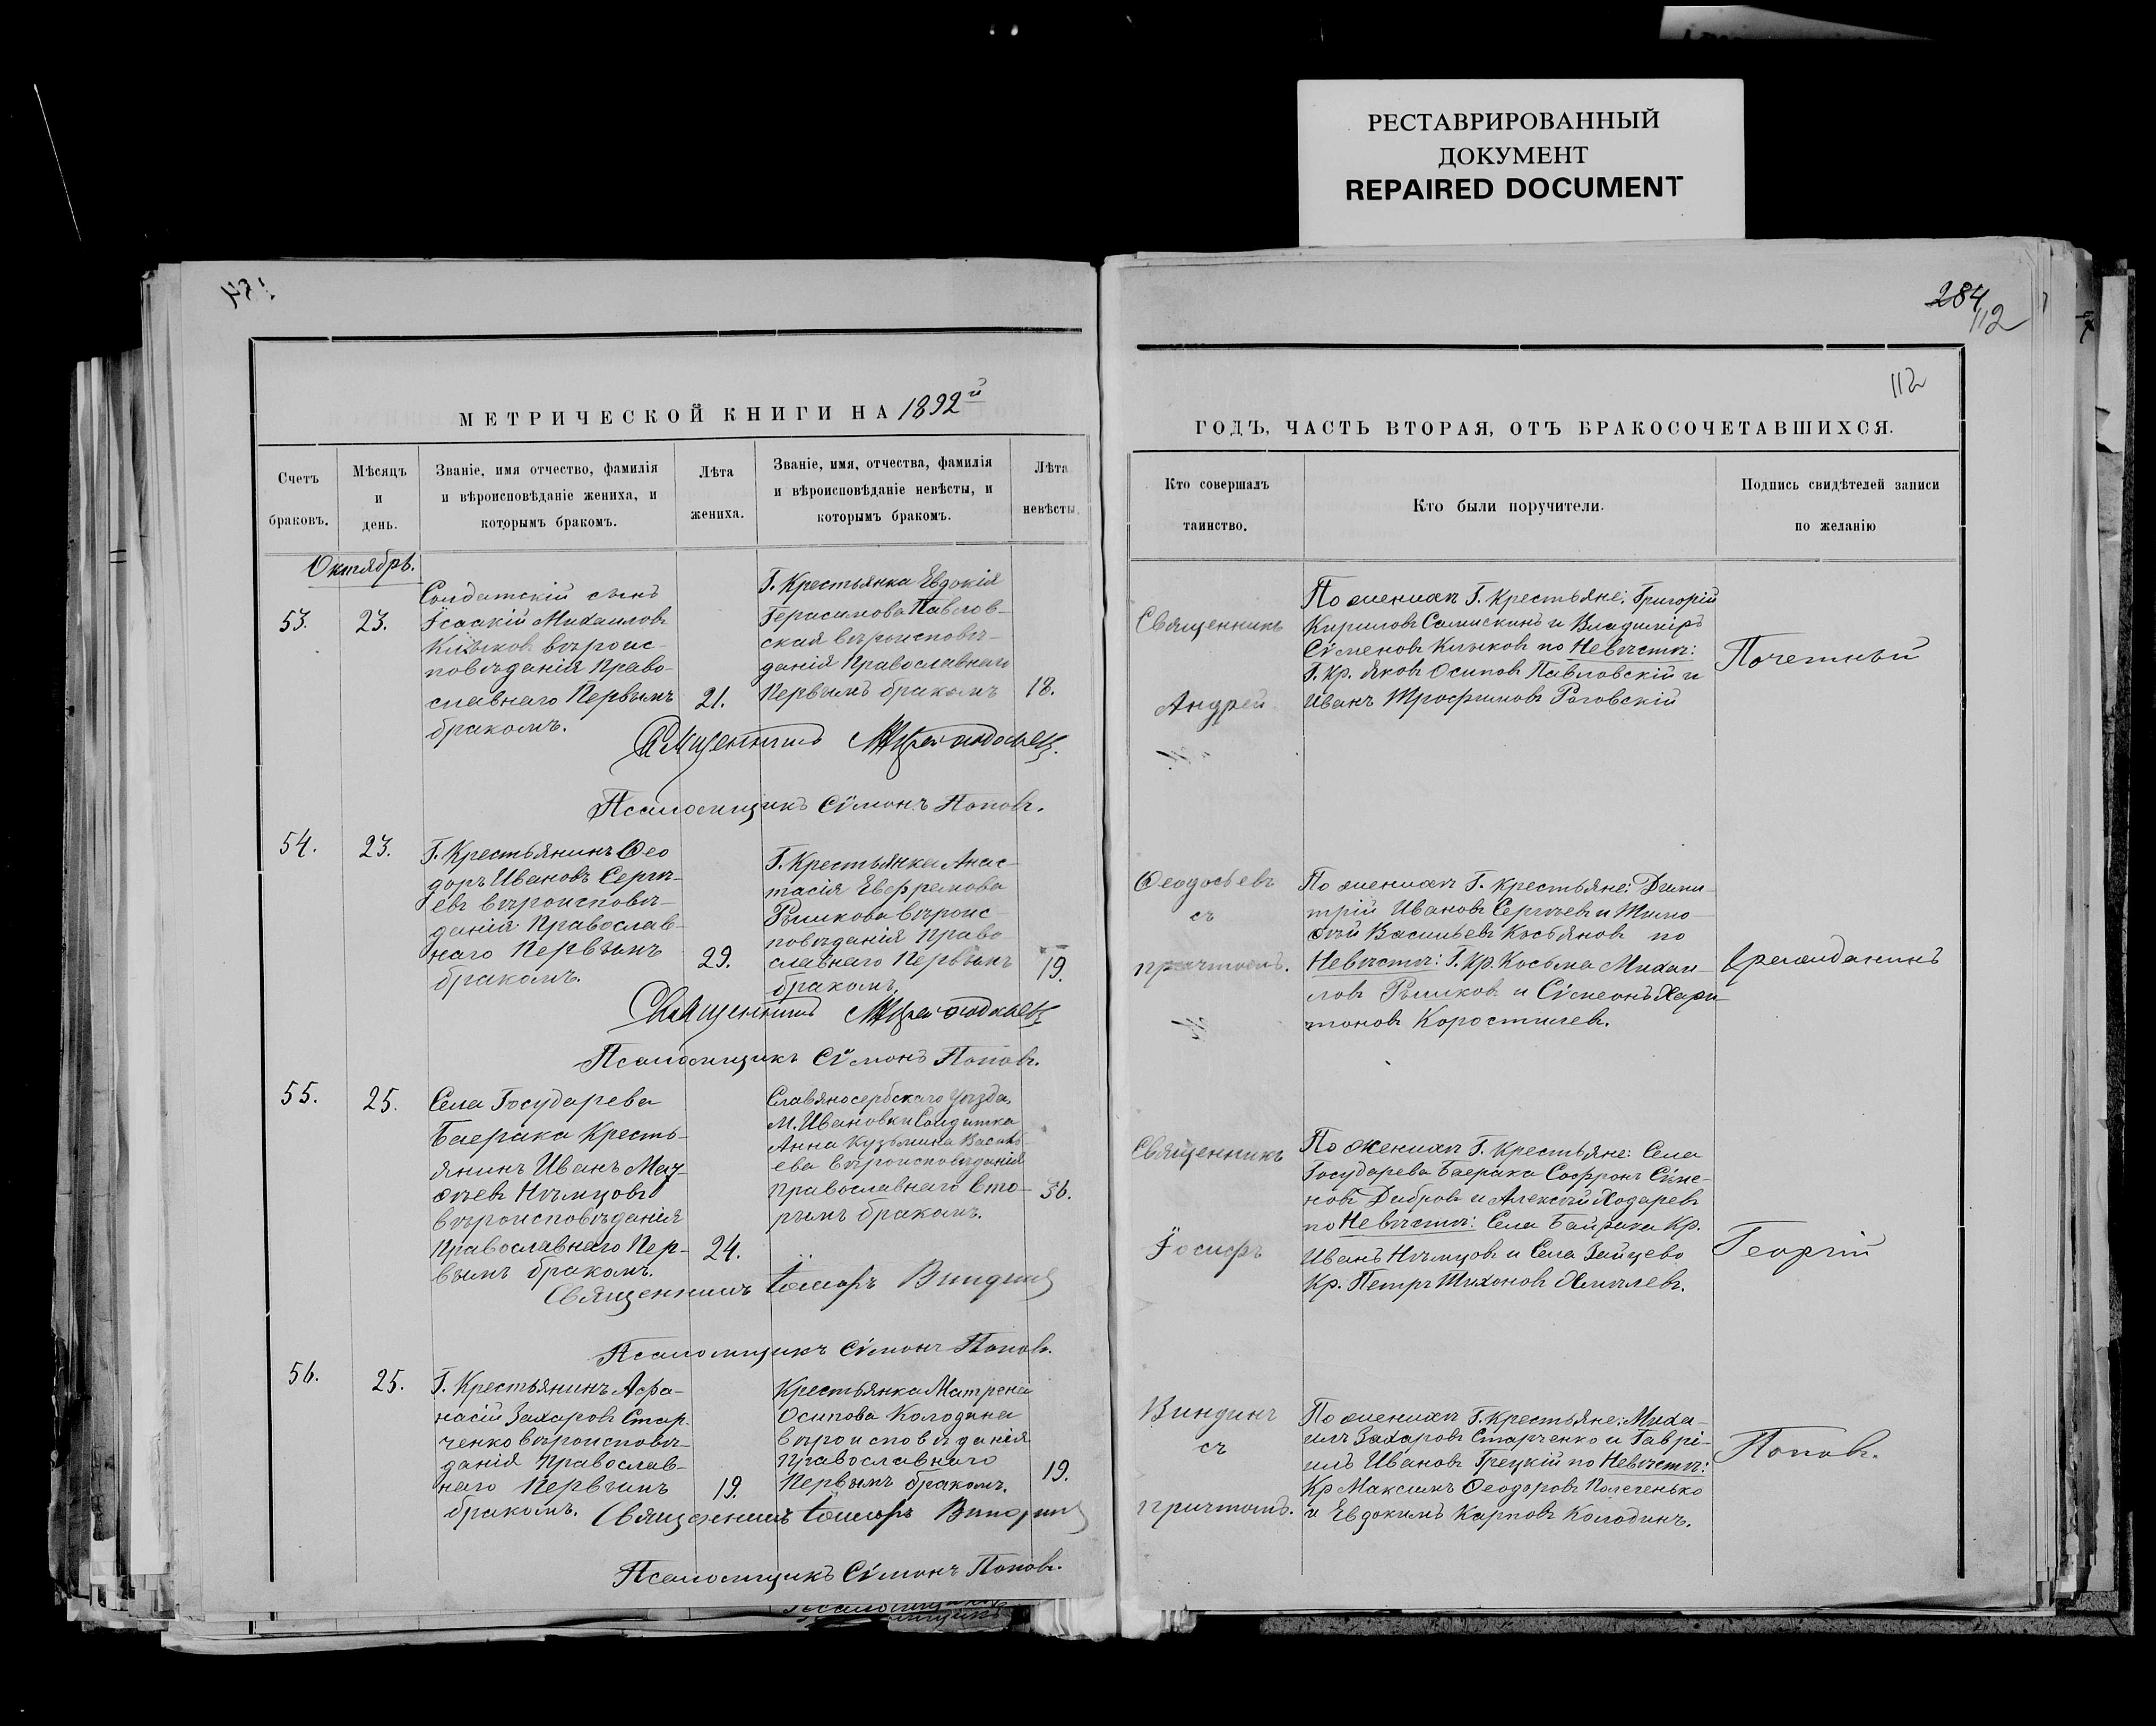 РЕСТАВРИРОВАННЫЙ
ДОКУМЕНТ
REPAIRED DOCUMENT
284
112
112
МЕТРИЧЕСКОЙ КНИГИ НА 1892й
ГОДЪ, ЧАСТЬ ВТОРАЯ, ОТЪ БРАКОСОЧЕТАВШИХСЯ.
Счетъ
браковъ.
Мѣсяцъ
и
день.
Званіе, имя отчество, фамилія
и вѣроисповѣданіе жениха, и
которымъ бракомъ.
Лѣта
жениха.
Званіе, имя, отчества, фамилія
и вѣроисповѣданіе невѣсты, и
которымъ бракомъ.
Лѣта
невѣсты.
Кто совершалъ
таинство.
Кто были поручители.
Подпись свидѣтелей записи
по желанію
Октябрь.
53.
23.
Солдатскій сынъ
Ісаакій Михаиловъ
вѣроис-
повѣданія Право-
славнаго Первымъ
бракомъ.
21.
Г. Крестьянка Евдокія
Герасимова Павлов-
ская вѣроисповѣ-
данія Православнаго
Первымъ бракомъ
18.
Священникъ
Андрей
По женихѣ Г. Крестьяне: Григорій
Кириловъ Самискинъ и Владиміръ
Сѵменовъ по Невѣстѣ:
Г. Кр. Яковъ Осиповъ Павловскій и
Иванъ Трофимовъ Роговскій
Почетный
Священникъ
Псаломщикъ Сѵмонъ Поповъ.
54.
23.
Г. Крестьянинъ Ѳео
доръ Ивановъ Сергѣ-
евъ вѣроисповѣ-
данія Православ-
наго Первымъ
бракомъ.
29.
Г. Крестьянка Анас-
тасія Евфремова
Рѣшкова вѣроис
повѣданія Право
славнаго Первымъ
бракомъ,
19.
Ѳеодосьевъ
съ
причтомъ.
По женихѣ Г. Крестьяне: Дими-
трій Ивановъ Сергѣевъ и Тимо-
ѳѣй Васильевъ Косьяновъ по
Невѣстѣ: Г. Кр. Косьма Михаи-
ловъ Рѣшковъ и Сѵмеонъ Хари-
тоновъ Коростилевъ.
гражданинъ
Священникъ
Псаломщикъ Сѵмонъ Поповъ.
55.
25.
Села Государева
Баерака Кресть-
янинъ Иванъ Мат-
ѳѣевъ Нѣмцовъ
вѣроисповѣданія
Православнаго Пер-
вымъ бракомъ.
24.
Славяносербскаго Уѣзда,
М. Ивановки Солдатка
Анна Кузьмина Василь-
ева Вѣроисповѣданія
Православнаго Вто-
рымъ бракомъ.
36.
Священникъ
Іосифъ
По Женихѣ Г. Крестьяне: Села
Государева Баерака Софронъ Сѵме-
новъ Дибровъ и Алексѣй Ходаревъ
по Невѣстѣ: Села Байрака Кр.
Иванъ Нѣмцовъ и Села Зайцево
Кр. Петръ Тихоновъ Хмѣлевъ.
Георгій
Священникъ Іосифъ Виндинъ
Псаломщикъ Сѵмонъ Поповъ.
56.
25.
Г. Крестьянинъ Аѳа-
насій Захаровъ Стар-
ченко вѣроисповѣ-
данія Православ-
наго Первымъ
бракомъ.
19.
Крестьянка Матрена
Осипова Колодина
вѣроисповѣданія
Православнаго
Первымъ бракомъ.
19.
Виндинъ
съ
причтомъ.
По женихѣ Г. Крестьяне: Миха-
илъ Захаровъ Старченко и Гаврі-
илъ Ивановъ Грецкій по Невѣстѣ:
Кр Максимъ Ѳеодоровъ Полегенько
и Евдокимъ Карповъ Колодинъ.
Поповъ.
Священникъ Іосифъ Виндинъ
Псаломщикъ Сѵмонъ Поповъ.